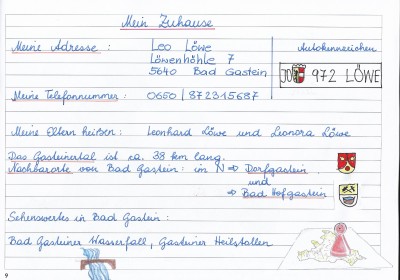 Mein Zuhause
Meine Adresse : Leo Löwe
Löwenhöhle 7
5640 Bad Gastein
Autokennzeichen
JO 972 LÖWE
Meine Telefonnummer : 0650 / 872315687
Meine Eltern heißen : Leonhard Löwe und Leonora Löwe
Das Gasteinertal ist ca. 38 km lang.
Nachbarorte von Bad Gastein : im N ⇒ Dorfgastein
und
⇒ Bad Hofgastein
Sehenswertes in Bad Gastein :
Bad Gasteiner Wasserfall, Gasteiner Heilstollen
9